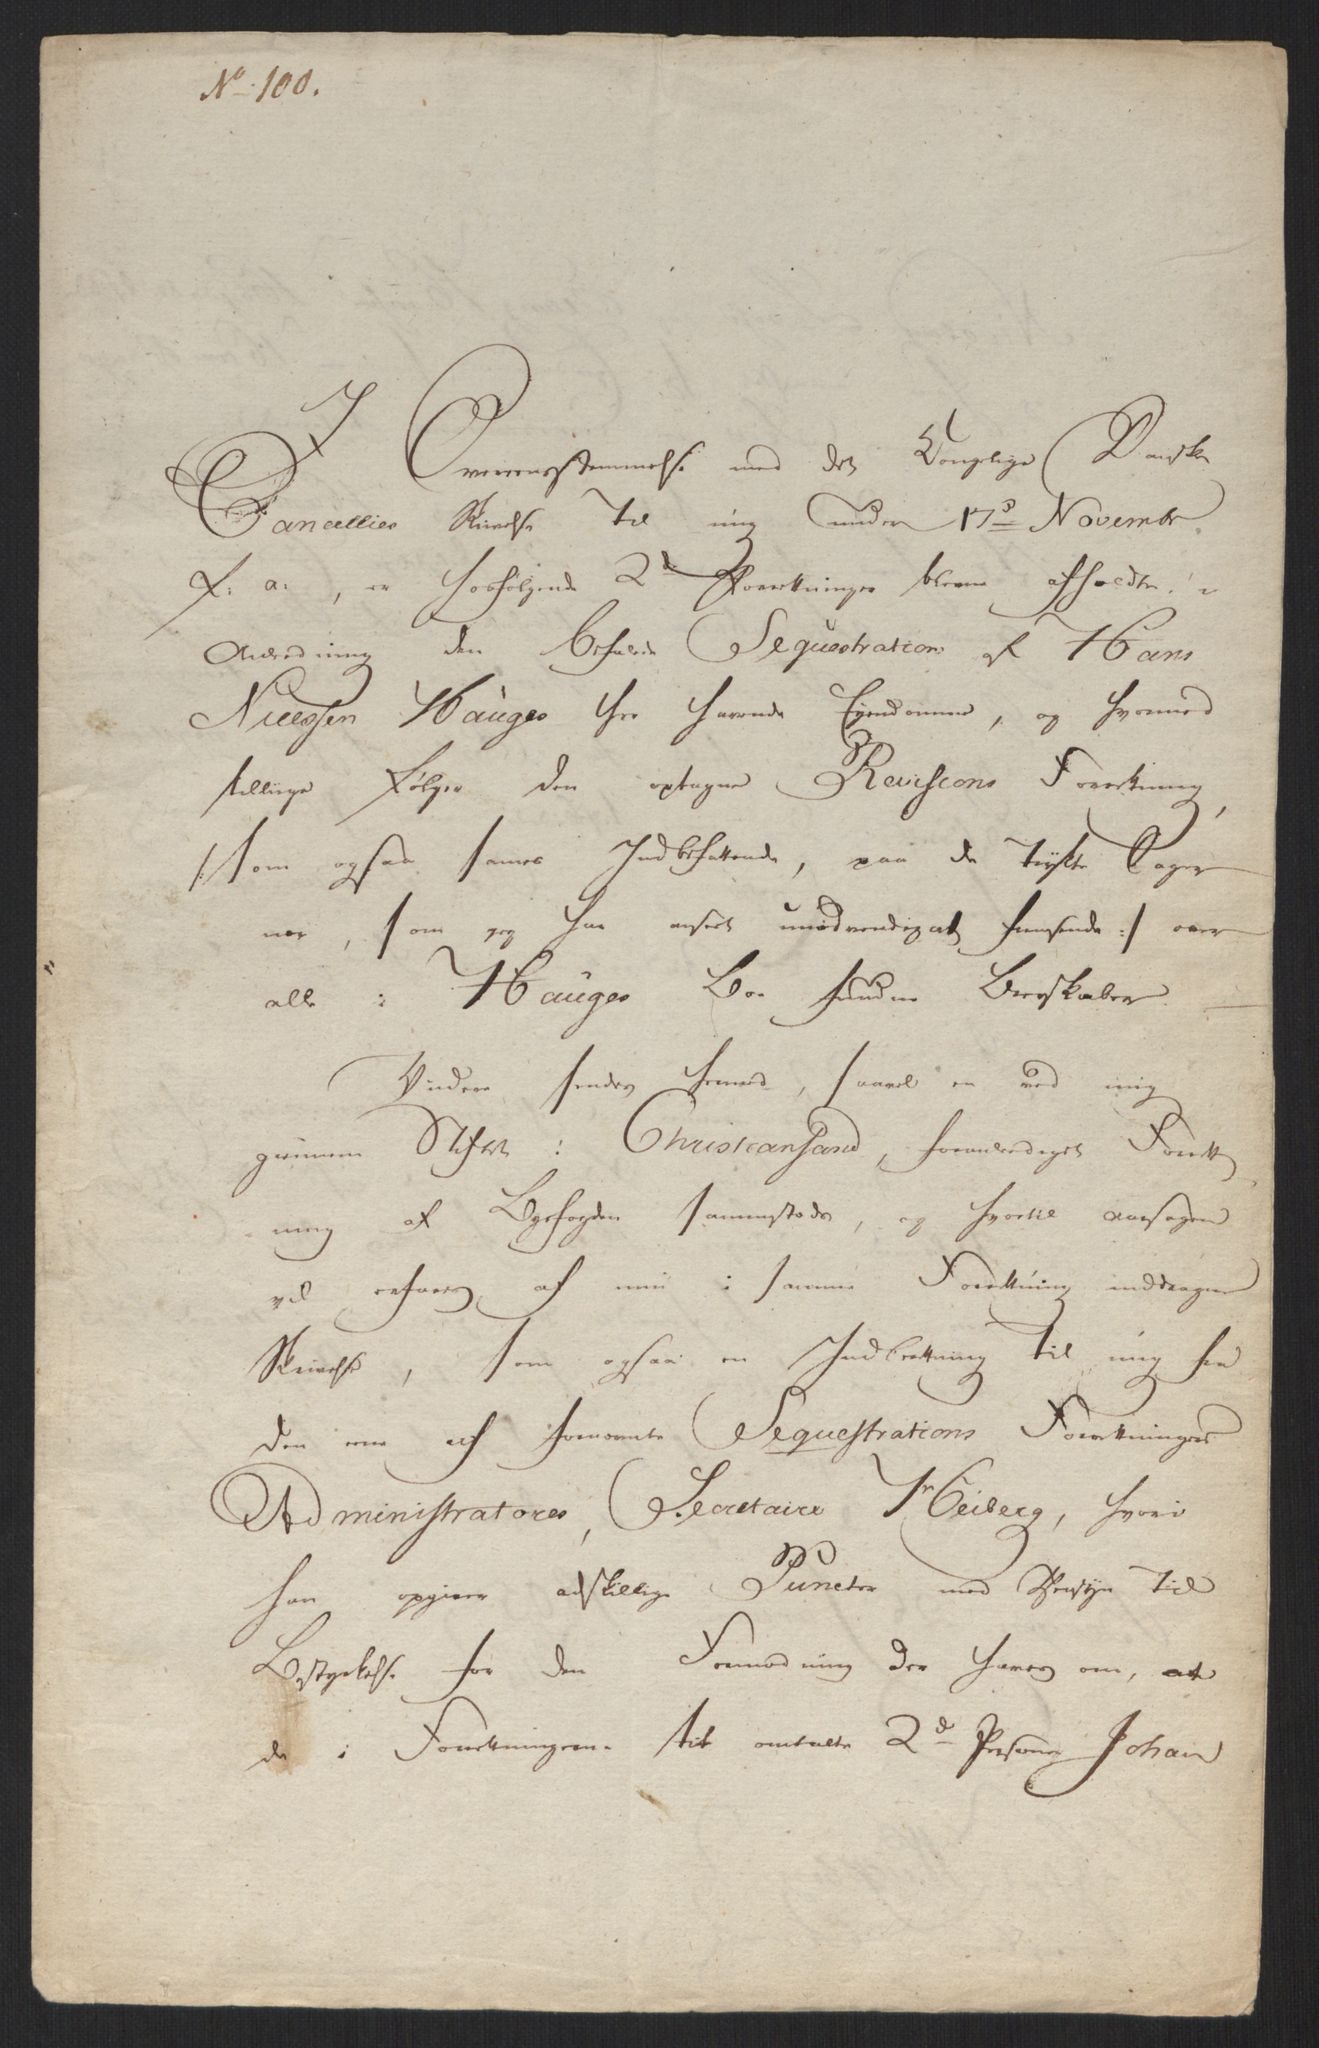 No 100.
I Overeensstemmelse med det Kongelige Danske
Cancellies Skrivelse til mig under 17d Novembr
f: a:, er hosfølgende 2de Forretninger blevne afholdte, i
Anledning den befalede Sequestration af Hans
Nielssen Hauges her havende Eyendomme, og hvormed
tillige følger den optagne Revisions Forretning,
/: som ogsaa sames Indbefattende, paa de trykte Bøger
nær, som jeg har anseet unødvendigat fremsende :/ over
alle i Hauges Boe fundne Brevskaber.
Videre sendes hermed, saavel en ved mig
gjennem Stiftet i Christiansand, foranlediget Forret-
ning af Byefogden sammestæds, og hvortil Aarsagen
vil erfares af min i samme Forretning inddragne
Skrivelse, som ogsaa en Indberetning til mig fra
den ene af fornævnte Sequestrations Forretningers
Administratores, Secretaire Hr Heiberg, hvori
han opgiver adskillige Puncter med Hensyn til
Bestyrkelse for den Formodning der haves om, at
de i Forretningerne tit omtalte 2de Personer Johan